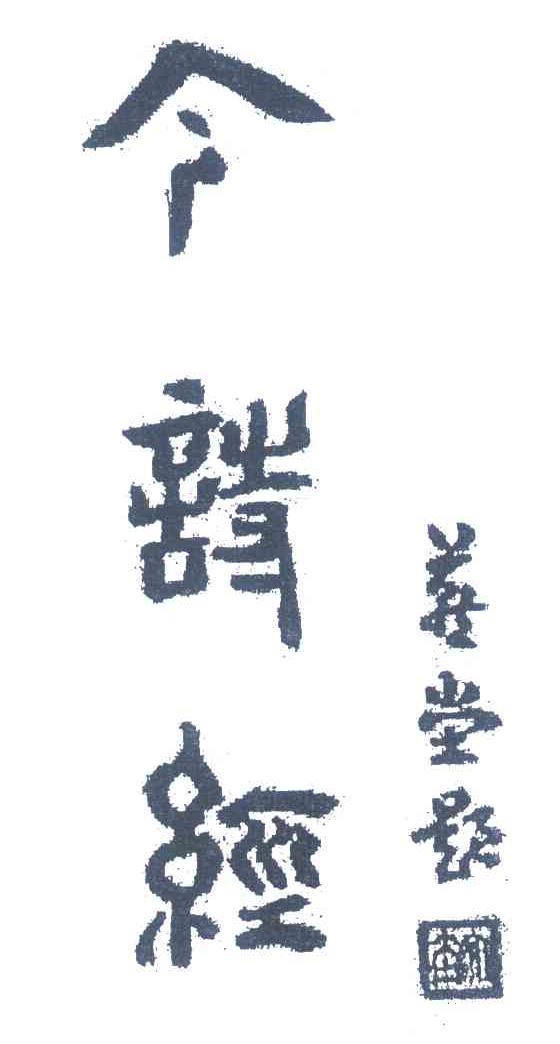 今詩經
堂題